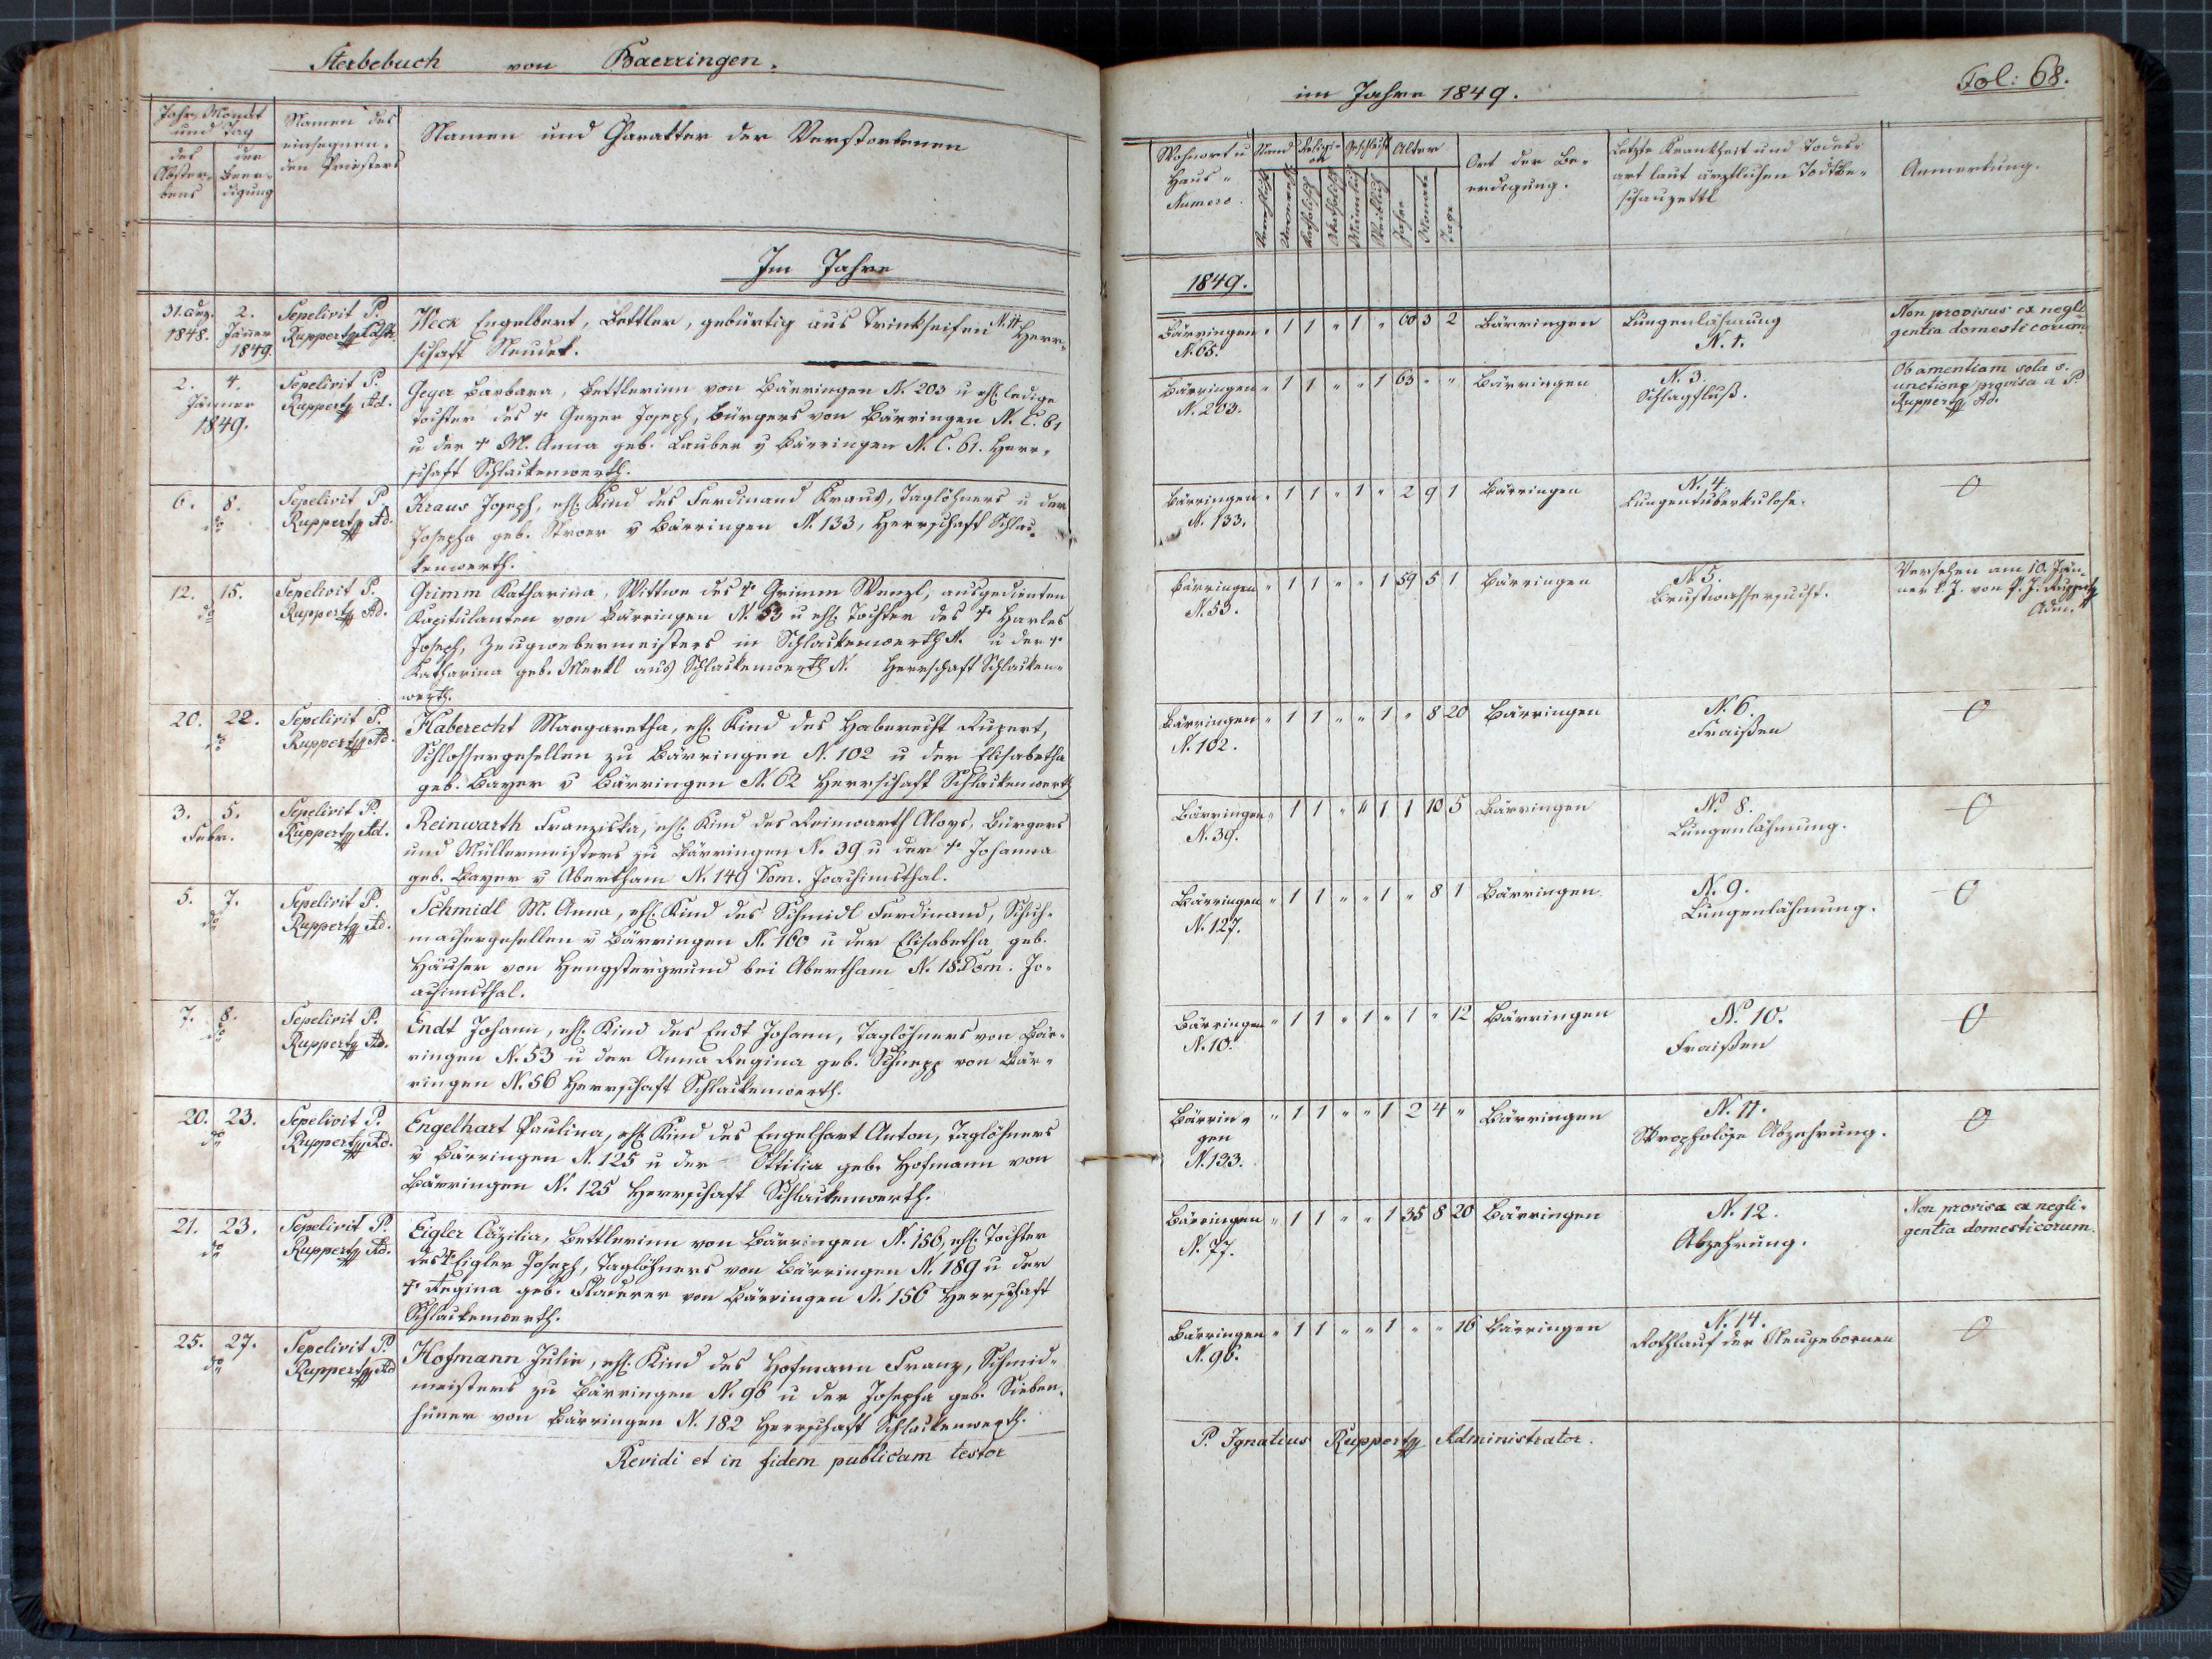 Sterbebuch von Baerringen.
Jahr, Monat
und Tag
des
Abster-
bens
der
Beer-
digung
Namen des
einsegnen-
den Priesters
Namen und Charakter der Verstorbenen
Im Jahre
2.
1848. Jäner
1849.
Sepelivit P.
Ruppert
Weck Engelbert, Bettler, gebürtig aus Trinkseifen Herr-
schaft Neudek.
2. 4.
Jänner
1849.
Sepelivit P.
Ruppert Ad.
Geyer Barbara, Bettlerinn von Bärringen N. 203 u ehl. ledige
Tochter des † Geyer Joseph, Bürgers von Bärringen N. C. 61
u der † M. Anna geb. Lauber v Bärringen N. C. 61. Herr-
schaft Schlackenwerth.
6. 8.
do
Sepelivit P.
Ruppert Ad.
Kraus Joseph, ehl. Kind des Ferdinand Kraus, Taglöhners u der
Josepha geb. v Bärringen N. 133, Herrschaft Schla-
kenwerth.
12. 15.
do
Sepelivit P.
Ruppert Ad.
Grimm Katharina, Wittwe des † Grimm Wenzl, ausgedienten
Kapitulanten von Bärringen N. 53 u ehl. Tochter des † Harles
Joseph, Zeugwebermeisters in Schlackenwerth N. u der †
Katharina geb. Merkl aus Schlackenwerth N. Herrschaft Schlacken-
werth.
20. 22.
do
Sepelivit P.
Ruppert Ad.
Haberecht Margaretha, ehl. Kind des Haberecht Rupert,
Schlossergesellen zu Bärringen N. 102 u der Elisabetha
geb. Bayer v Bärringen N. 62 Herrschaft Schlackenwerth
3. 5.
Febr.
Sepelivit P.
Ruppert Ad.
Reinwarth Franziska, ehl. Kind des Reinwarth Aloys, Bürgers
und Müllermeisters zu Bärringen N. 39 u der † Johanna
geb. Bayer v Abertham N. 149 Dom. Joachimsthal.
5. 7.
do
Sepelivit P.
Ruppert Ad.
Schmidl M. Anna, ehl. Kind des Schmidl Ferdinand, Schuh-
machergesellen v Bärringen N. 160 u der Elisabetha geb.
Häuser von Hengstergrund bei Abertham N. 18 Dom. Jo-
achimsthal.
7. 8.
do
Sepelivit P.
Ruppert Ad.
Endt Johann, ehl. Kind des Endt Johann, Taglöhners von Bär-
ringen N. 53 u der Anna Regina geb. Schnepp von Bär-
ringen N. 56 Herrschaft Schlackenwerth.
20. 23.
do
Sepelivit P.
Ruppert Ad.
Engelhart Paulina, ehl. Kind des Engelhart Anton, Taglöhners
v Bärringen N. 125 u der Ottilia geb. Hofmann von
Bärringen N. 125 Herrschaft Schlackenwerth.
21. 23.
do
Sepelivit P.
Ruppert Ad.
Eigler Cäzilia, Bettlerinn von Bärringen N. 156, ehl. Tochter
des † Eigler Joseph, Taglöhners von Bärringen N. 189 u der
† Regina geb. von Bärringen N. 156 Herrschaft
Schlackenwerth.
25. 27.
do
Sepelivit P.
Ruppert Ad
Hofmann Julie, ehl. Kind des Hofmann Franz, Schmid-
meisters zu Bärringen N. 96 u der Josepha geb. Sieben-
hüner von Bärringen N. 182 Herrschaft Schlackenwerth.
Revidi et in fidem publicam testor
im Jahre 1849.
Fol: 68.
Wohnort u
Haus-
Numero.
Stand
Religi-
on
Geschlecht
Alter
Katholisch
Akatholisch
Männlich
Weiblich
Jahre
Monate
Tage
Ort der Be-
erdigung.
Letzte Krankheit und Todes-
art laut ärztlichen Todtbe-
schauzettl
Anmerkung.
1849.
Bärringen
N. 65.
" 1 1 " 1 " 60 3 2 Bärringen
Lungenlähmung
N. 1.
Non provisus ex negli-
gentia domesticorum
Bärringen
N. 203.
" 1 1 " " 1 63 " " Bärringen
N. 3.
Schlagfluß.
Ob amentiam sola s.
unctione provisa a P.
Ruppert Ad.
Bärringen
N. 133.
" 1 1 " 1 " 2 9 1 Bärringen
N. 4.
Lungentuberkulose.
0
Bärringen
N. 53.
" 1 1 " " 1 59 5 1 Bärringen
N 5.
Brustwassersucht.
Versehen am 10. Jän-
ner l. J. von P. J. Ruppert
Adm.
Bärringen
N. 102.
" 1 1 " " 1 " 8 20 Bärringen
N. 6.
Fraißen
0
Bärringen
N. 39.
" 1 1 " " 1 1 10 5 Bärringen
N. 8.
Lungenlähmung.
0
Bärringen
N. 127.
" 1 1 " " 1 " 8 1 Bärringen
N. 9.
Lungenlähmung.
0
Bärringen
N. 10.
" 1 1 " 1 " 1 " 12 Bärringen
N. 10.
Fraißen
0
Bärrin-
gen
N. 133.
" 1 1 " " 1 2 4 " Bärringen
N. 11.
Skropholöse Abzehrung.
0
Bärringen
N. 77.
" 1 1 " " 1 35 8 20 Bärringen
N. 12.
Abzehrung.
Non provisa ex negli-
gentia domesticorum.
Bärringen
N. 96.
" 1 1 " " 1 " " 16 Bärringen
N. 14.
Rothlauf der Neugebornen
0
P. Ignatius Ruppert Administrator.